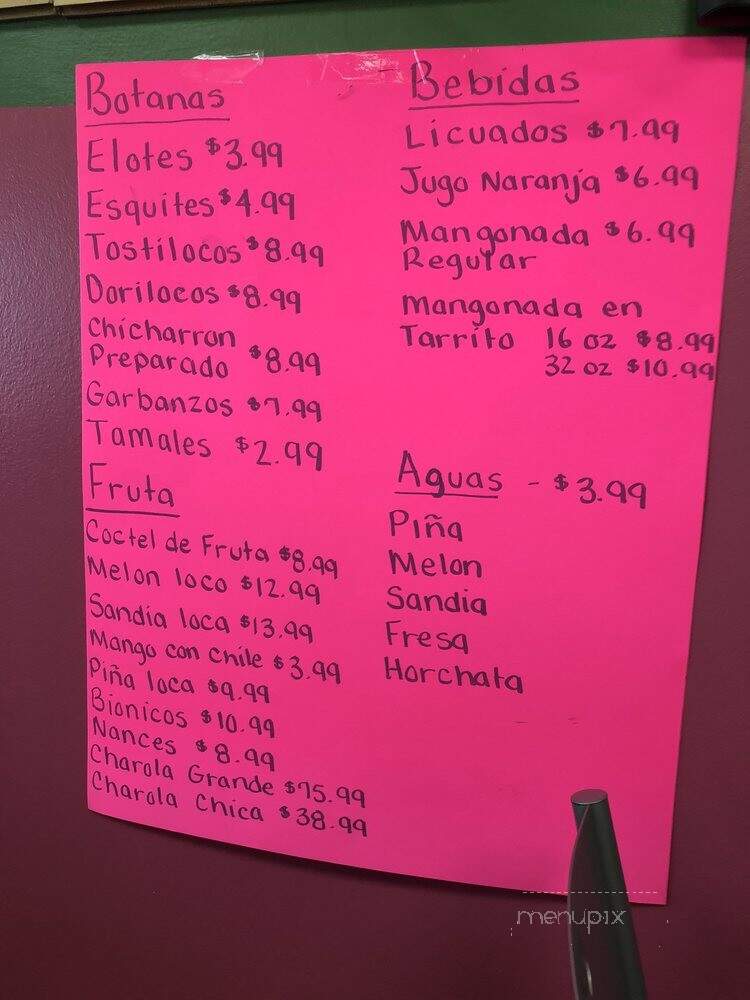 Botanas
Elotes $3.99
Esquites $4.99
Tostilocos $8.99
Dorilocos $8.99
Chicharron
Preparado $8.99
Garbanzos $7.99
Tamales $2.99
Fruta
Coctel de Fruta $8.99
Melon loco $12.99
Sandia loca $13.99
Mango con Chile $3.99
Piña loca $9.99
Bionicos $10.99
Nances $8.99
Charola Grande $75.99
Charola Chica $38.99
Bebidas
Licuados $7.99
Jugo Naranja $6.99
Mangonada $6.99
Regular
Mangonada en
Tarrito 16 oz $8.99
32 oz $10.99
Aguas - $3.99
Piña
Melon
Sandia
Fresa
Horchata
menupix